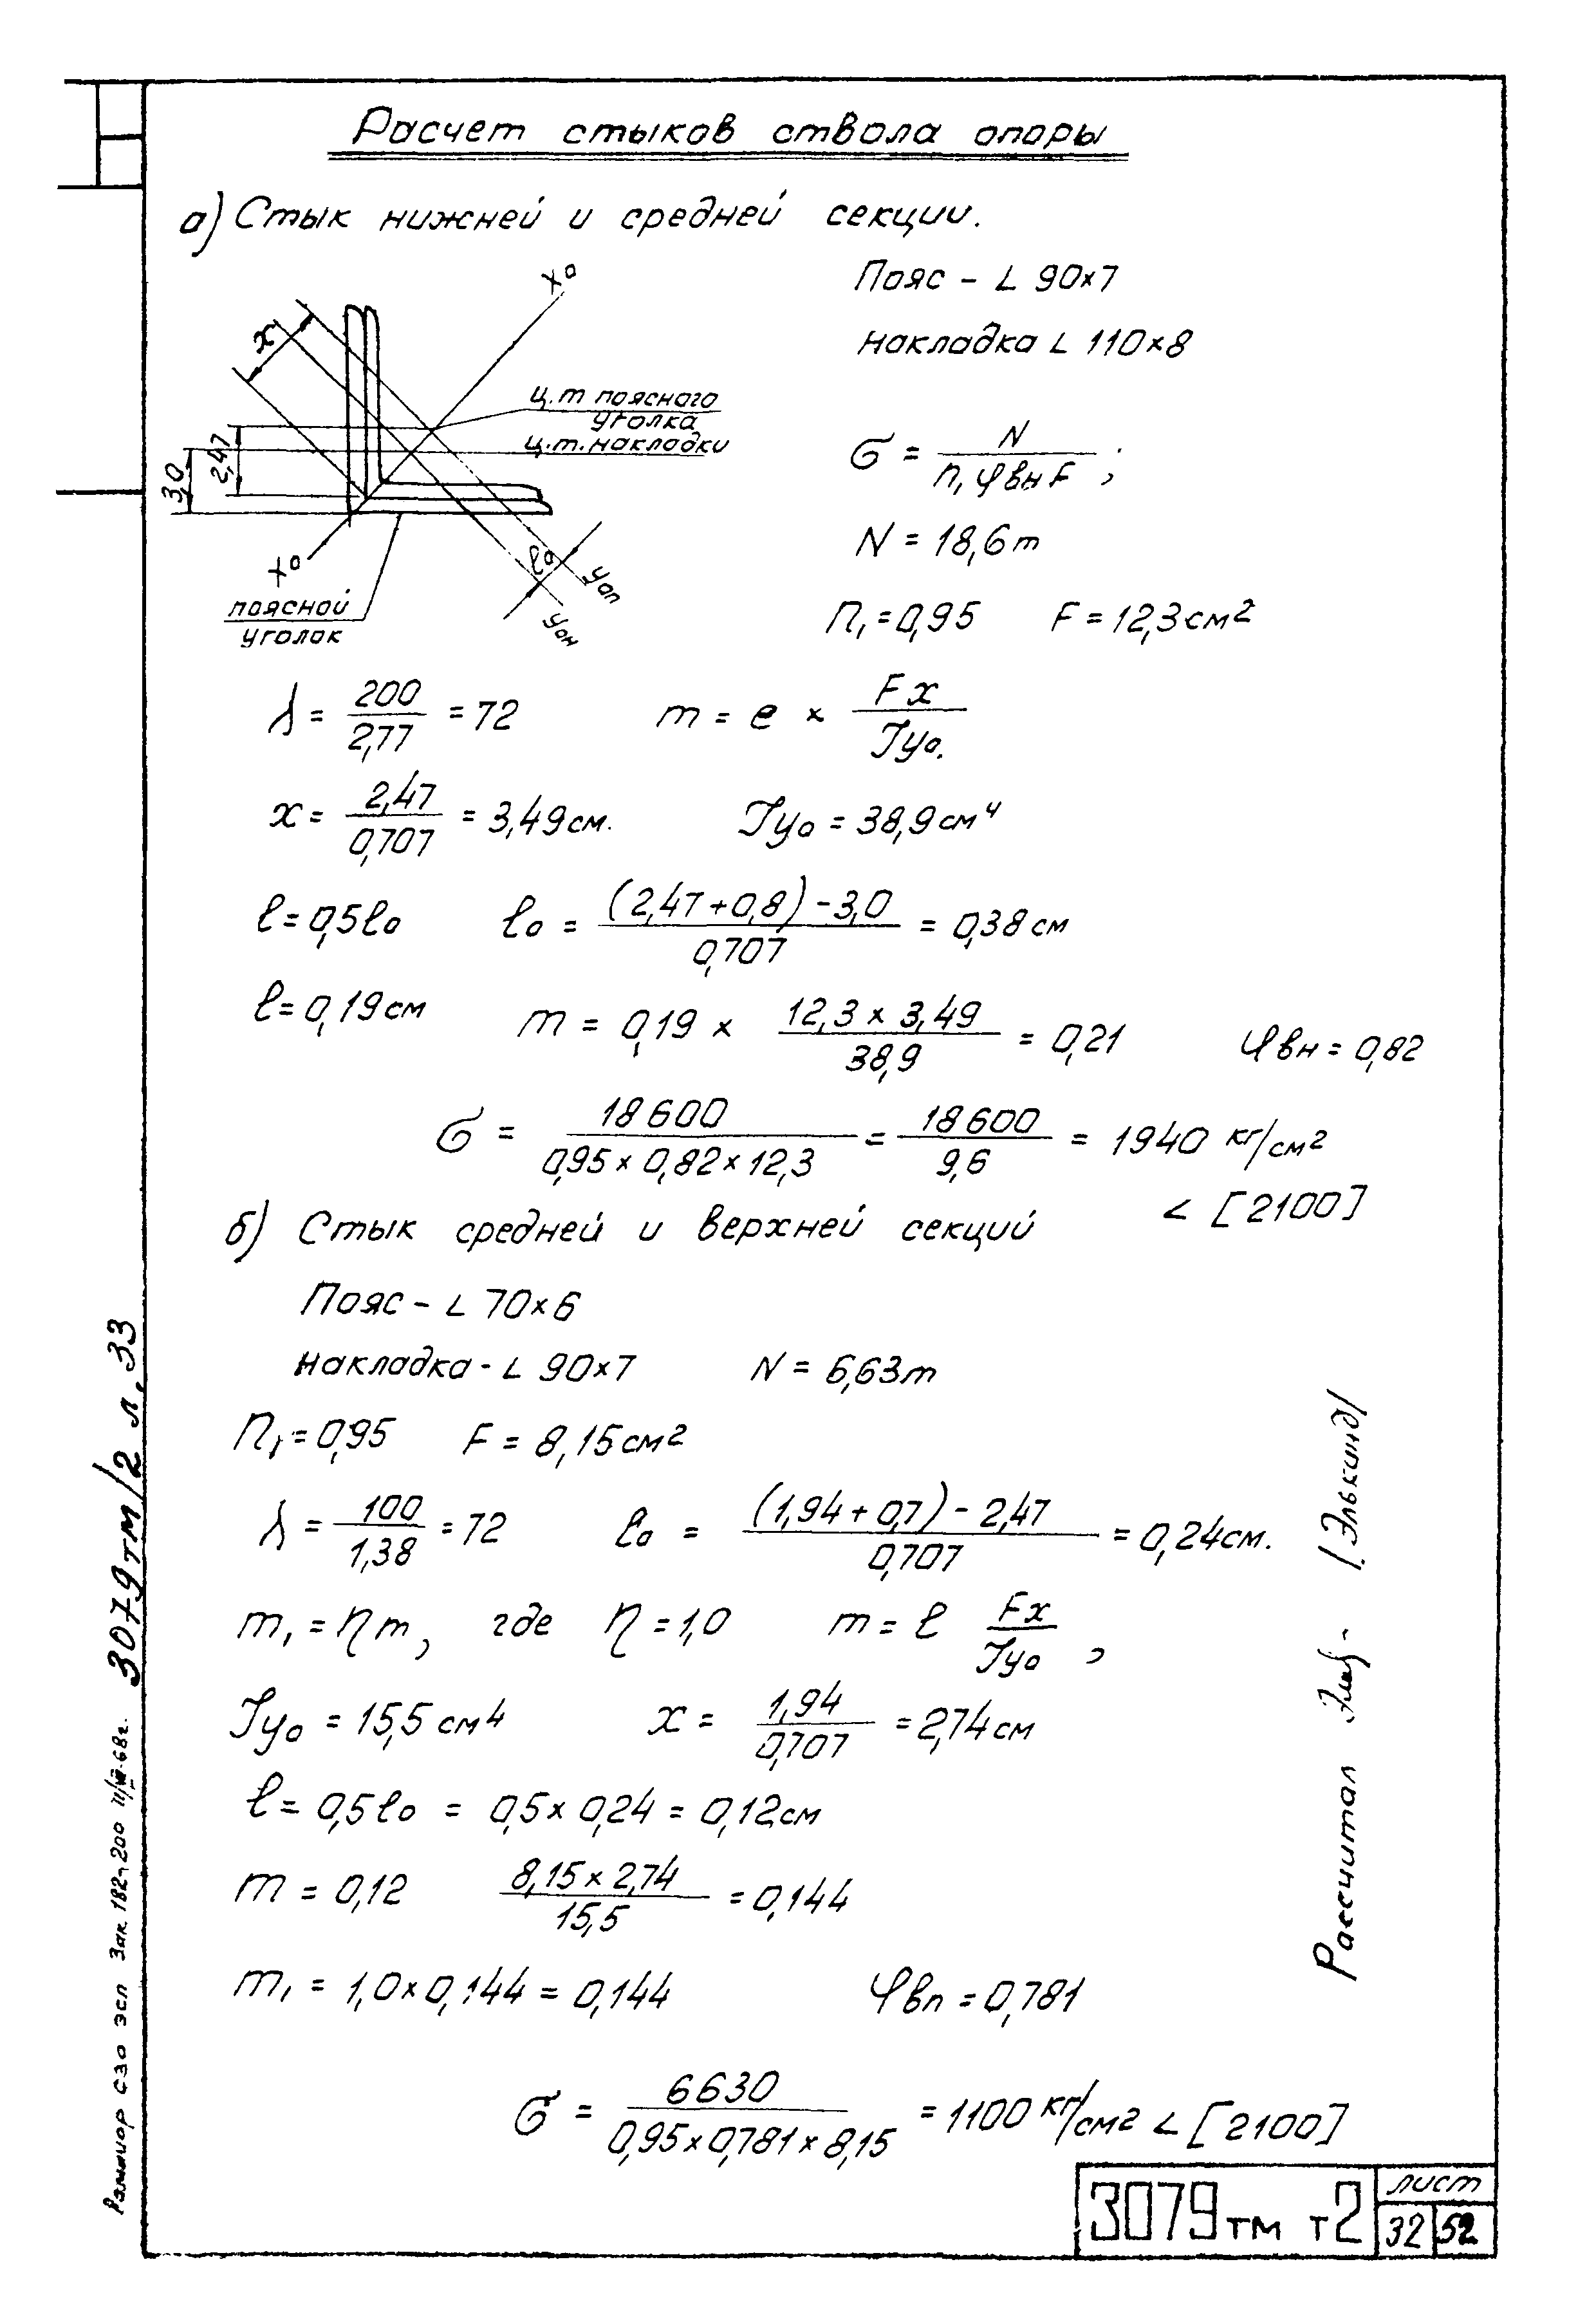 Расчет стыков ствола опоры
а) Стык нижней и средней секции.
Пояс - L 90×7
накладка L 110×8
x
x0
ц.т поясного
уголка
ц.т. накладки
2,47
3,0
x0
поясной
уголок
ℓ0
yоп
yон
σ = N / n₁ φвн F ;
N = 18,6т
n₁ = 0,95 F = 12,3см²
λ = 200 / 2,77 = 72 m = e × Fx / Jy0.
x = 2,47 / 0,707 = 3,49см. Jy0 = 38,9см⁴
ℓ = 0,5ℓ0 ℓ0 = (2,47+0,8) - 3,0 / 0,707 = 0,38см
ℓ = 0,19см m = 0,19 × 12,3 × 3,49 / 38,9 = 0,21 φвн = 0,82
σ = 18600 / 0,95 × 0,82 × 12,3 = 18600 / 9,6 = 1940 кг/см²
< [2100]
б) Стык средней и верхней секций
Пояс - L 70×6
накладка - L 90×7 N = 6,63т
n₁ = 0,95 F = 8,15см²
λ = 100 / 1,38 = 72 ℓ0 = (1,94 + 0,7) - 2,47 / 0,707 = 0,24см.
m₁ = ηm, где η = 1,0 m = ℓ Fx / Jy0 ,
Jy0 = 15,5 см4 x = 1,94 / 0,707 = 2,74см
ℓ = 0,5ℓ0 = 0,5 × 0,24 = 0,12см
m = 0,12 8,15 × 2,74 / 15,5 = 0,144
m₁ = 1,0 × 0,144 = 0,144 φвп = 0,781
σ = 6630 / 0,95 × 0,781 × 8,15 = 1100 кг/см² < [2100]
Рассчитал /Элькинд/
3079тм/2 л.33
СЗО ЭСП Зак 182-200 68г.
3079тм т2
лист
32 52